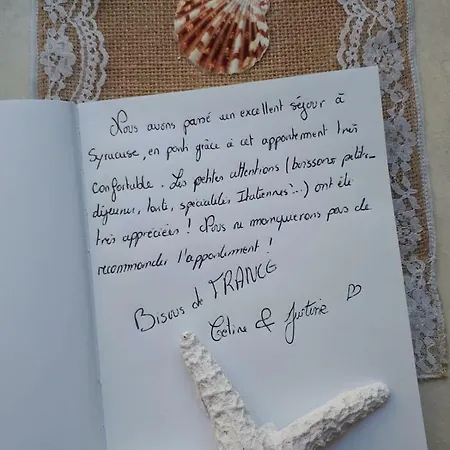 Nous avons passé un excellent séjour à
Syracuse, en partie grâce à cet appartement très
confortable. Les petites attentions (boissons, petits-
déjeuners, tarte, spécialités Italiennes...) ont été
très appréciées ! Nous ne manquerons pas de
recommander l'appartement !
Bisous de FRANCE
Céline & Justine